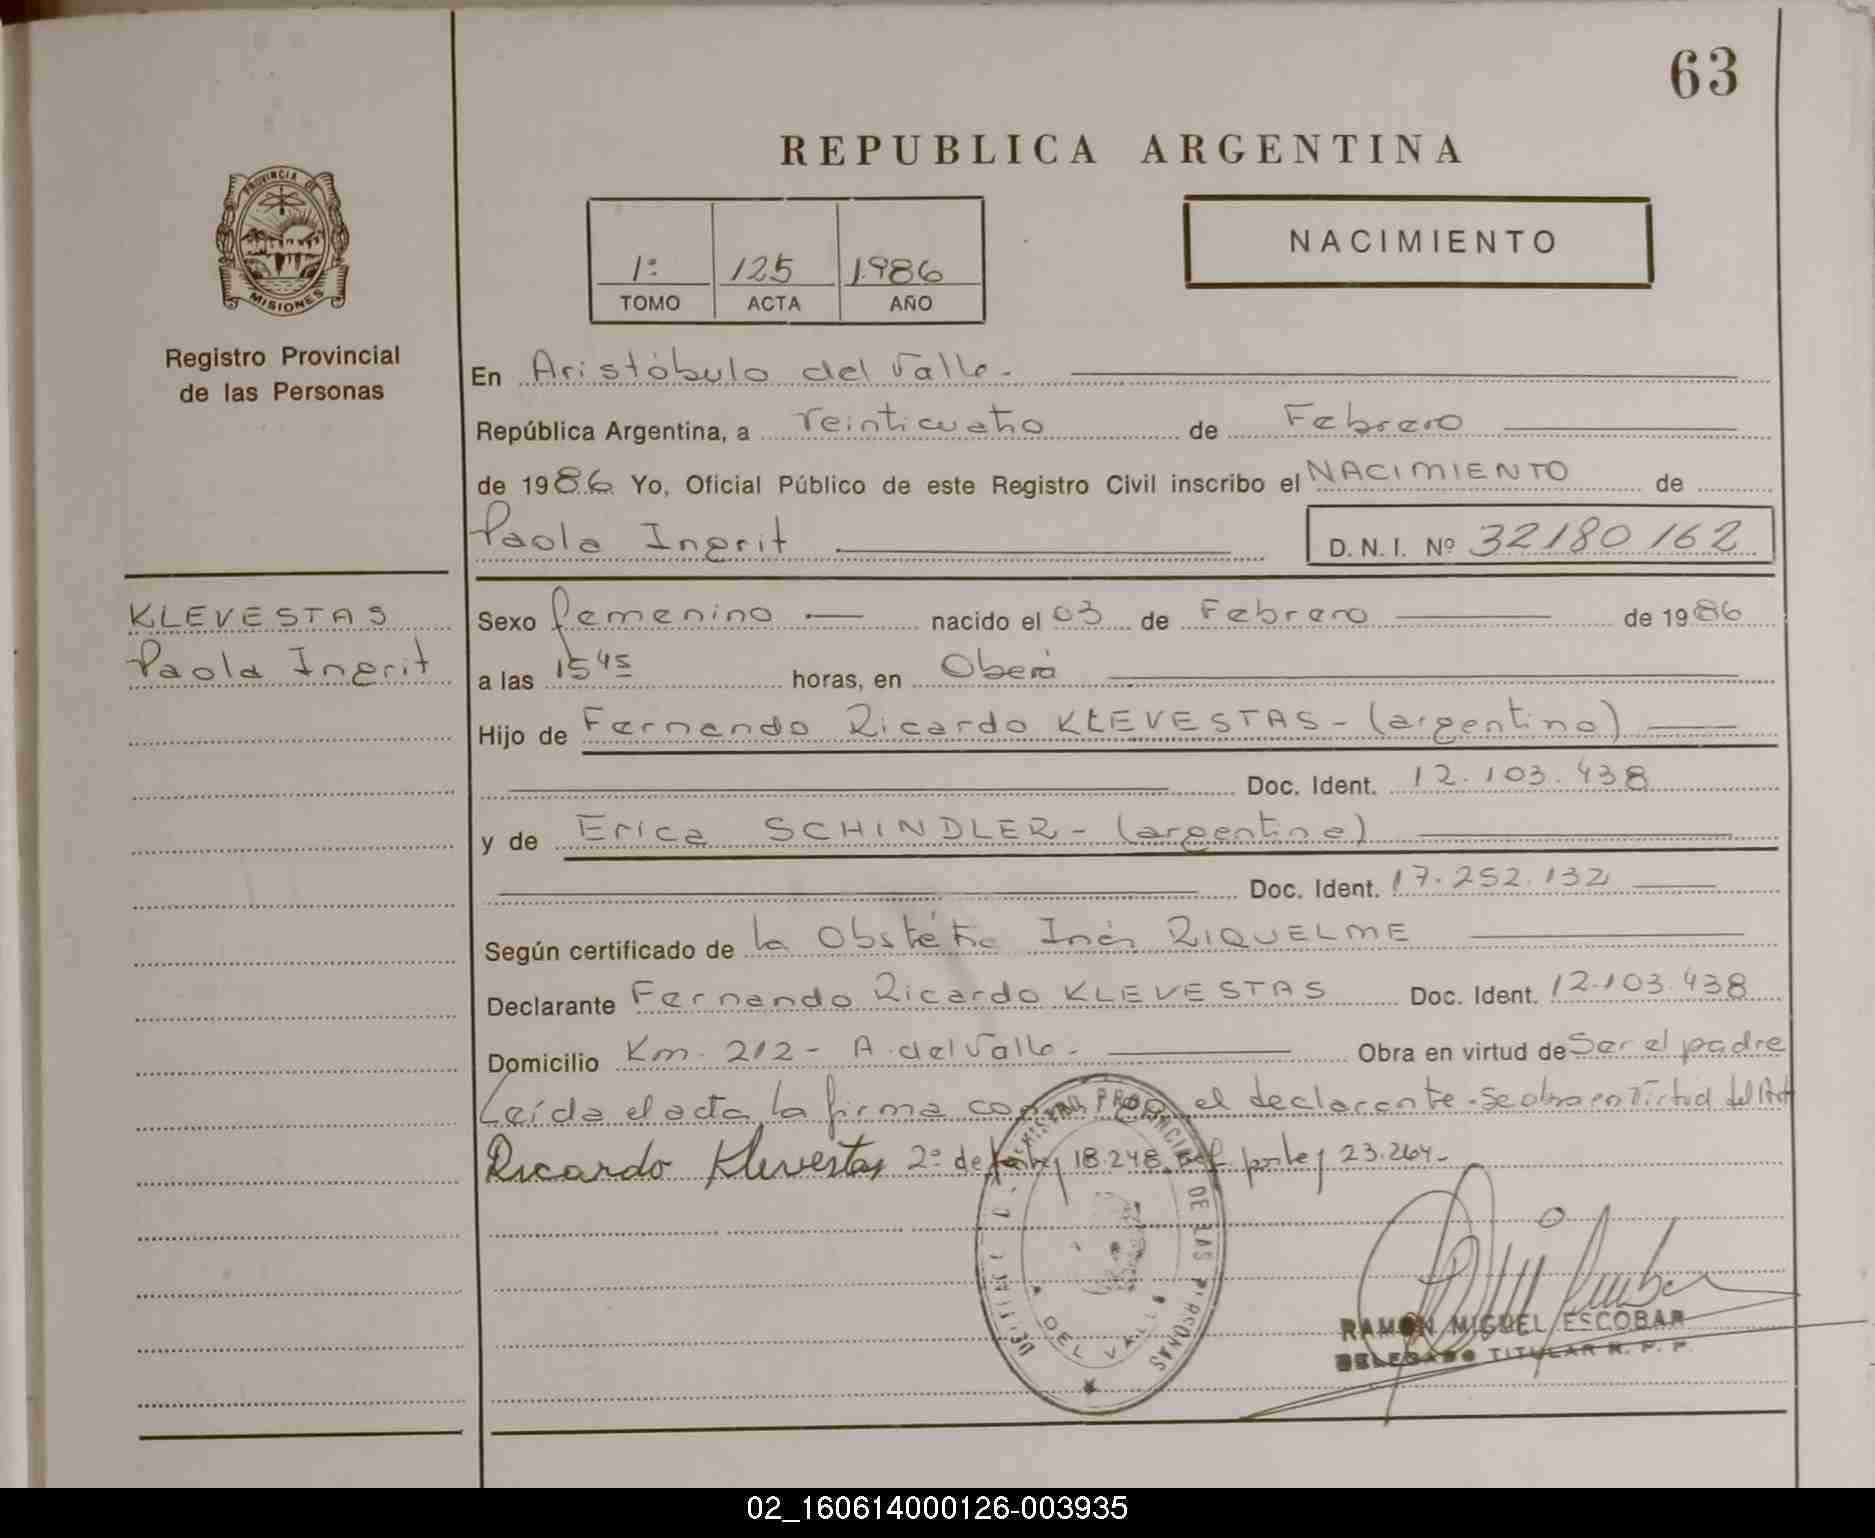 63
REPUBLICA ARGENTINA
PROVINCIA DE
MISIONES
Registro Provincial
de las Personas
1º 125 1.986
TOMO ACTA AÑO
NACIMIENTO
En Aristóbulo del Valle.
República Argentina, a Veinticuatro de Febrero
de 1986 Yo, Oficial Público de este Registro Civil inscribo el NACIMIENTO de
Paola Ingrit D. N. I. Nº 32180162
KLEVESTAS
Paola Ingrit
Sexo femenino nacido el 03 de Febrero de 1986
a las 15 45 horas, en Oberá
Hijo de Fernando Ricardo KLEVESTAS - (argentino)
Doc. Ident. 12.103.438
y de Erica SCHINDLER - (argentina)
Doc. Ident. 17.252.132
Según certificado de la Obstétric Inés RIQUELME
Declarante Fernando Ricardo KLEVESTAS Doc. Ident. 12.103.438
Domicilio Km. 212 - A. del Valle - Obra en virtud de Ser el padre
Leída el acta la firma el declarante. Se obra en Virtud del Art
Ricardo Klevestas 2º de 18.248 23.264 -
REGISTRO PROVINCIAL DE LAS PERSONAS
DEL VALLE
RAMON MIGUEL ESCOBAR
DELEGADO TITULAR R. P. P.
02_160614000126-003935